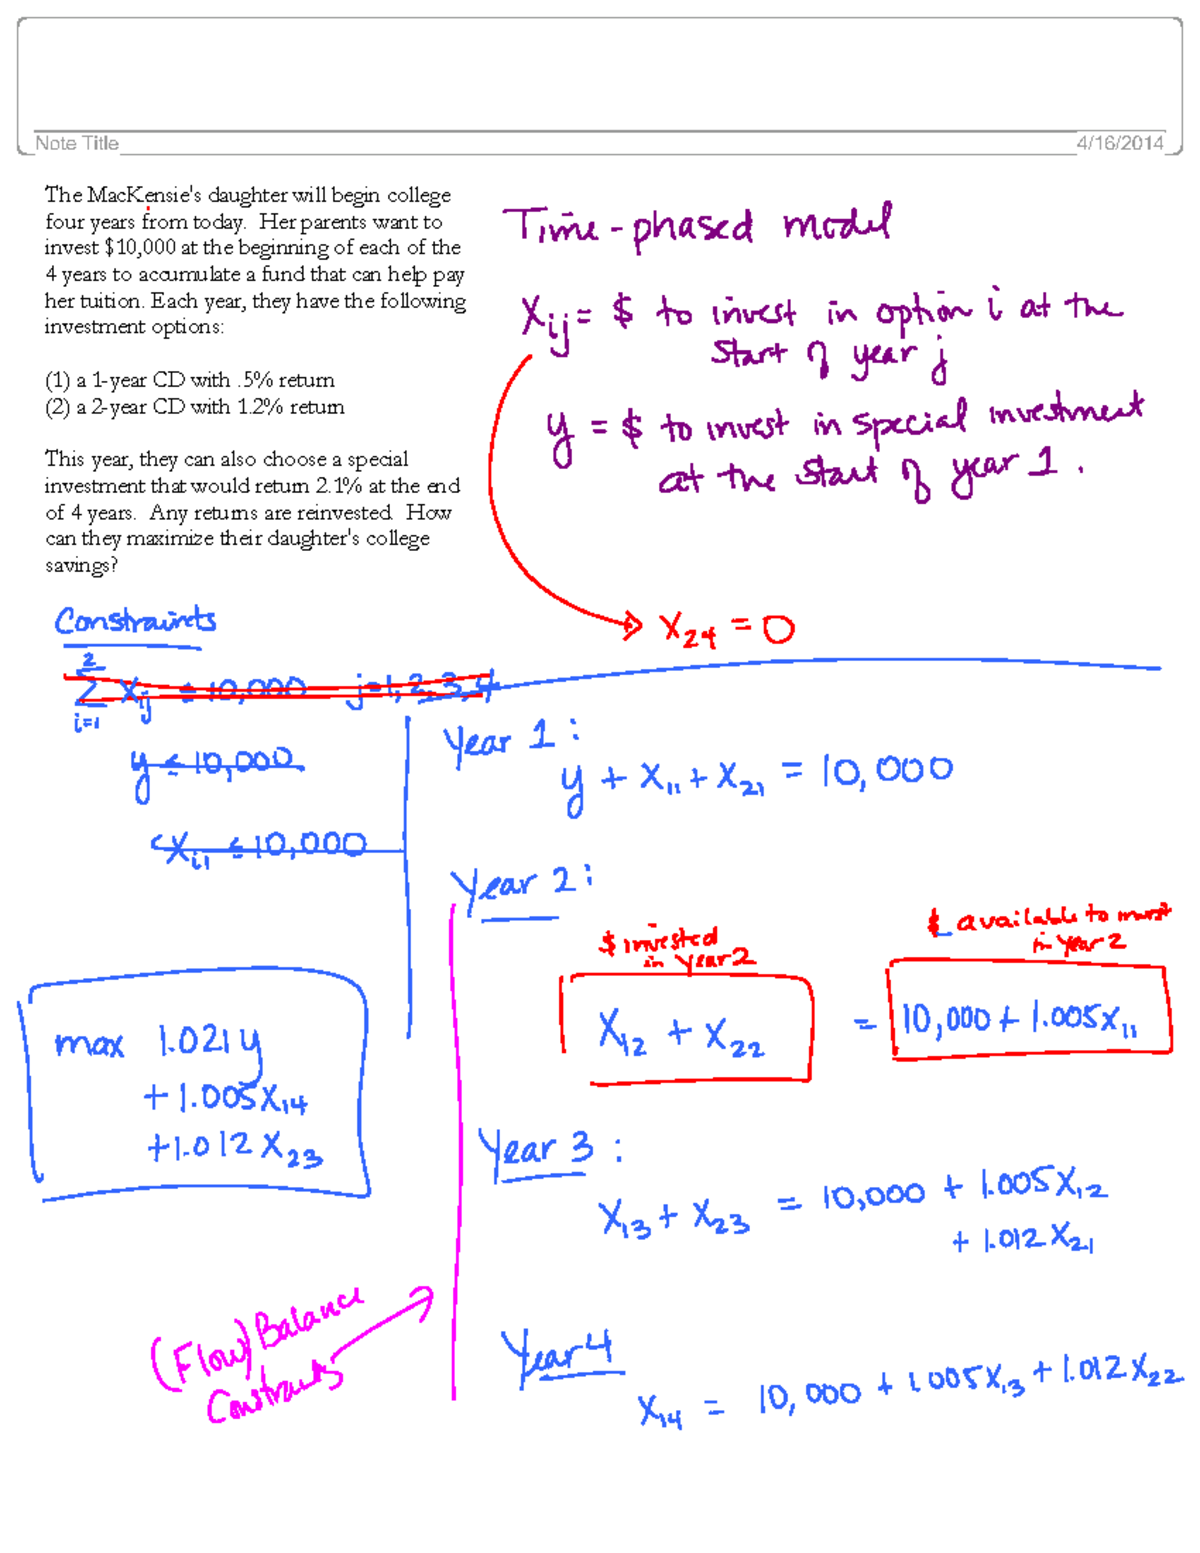 Note Title
4/16/2014
The MacKensie's daughter will begin college
four years from today. Her parents want to
invest $10,000 at the beginning of each of the
4 years to accumulate a fund that can help pay
her tuition. Each year, they have the following
investment options:
(1) a 1-year CD with .5% return
(2) a 2-year CD with 1.2% return
This year, they can also choose a special
investment that would return 2.1% at the end
of 4 years. Any returns are reinvested. How
can they maximize their daughter's college
savings?
Time-phased model
Xij = $ to invest in option i at the
start of year j
y = $ to invest in special investment
at the start of year 1.
X24 = 0
Constraints
2
Σ Xij = 10,000 j=1,2,3,4
i=1
y ≤ 10,000
Xi1 ≤ 10,000
Year 1:
y + X11 + X21 = 10,000
Year 2:
$ invested
in year 2
$ available to invest
in year 2
X12 + X22 = 10,000 + 1.005X11
max 1.021y
+ 1.005X14
+1.012X23
Year 3:
X13 + X23 = 10,000 + 1.005X12
+ 1.012X21
(Flow) Balance
Constraints
Year 4
X14 = 10,000 + 1.005X13 + 1.012X22